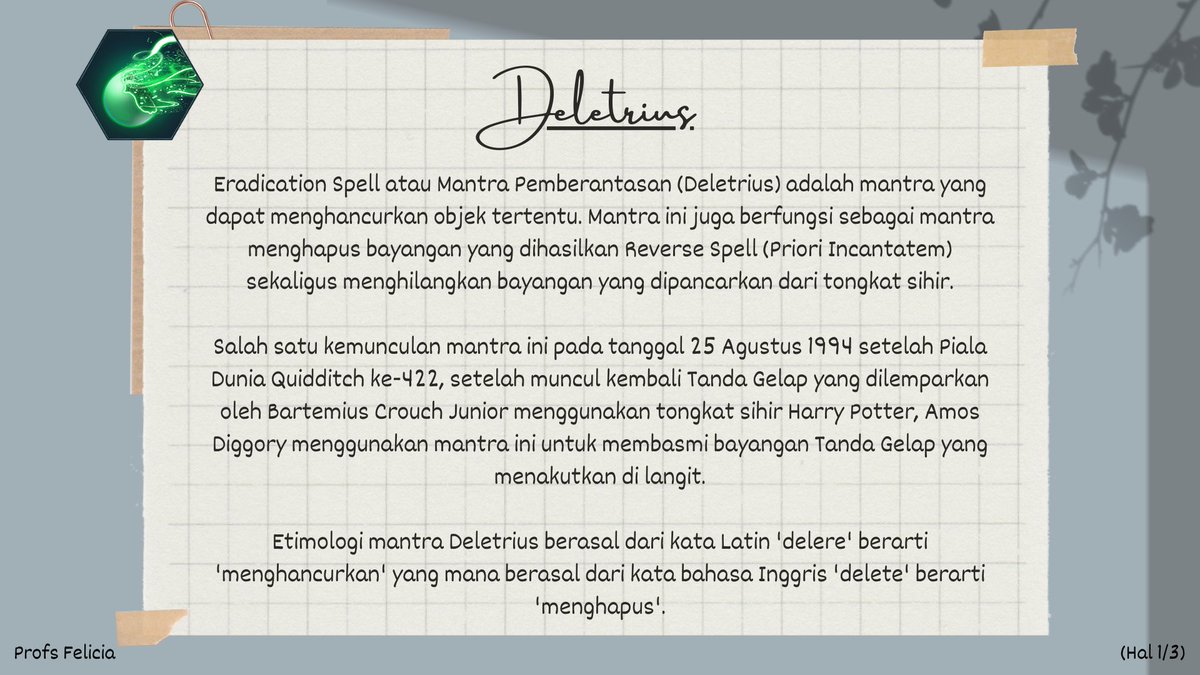 Deletrius
Eradication Spell atau Mantra Pemberantasan (Deletrius) adalah mantra yang
dapat menghancurkan objek tertentu. Mantra ini juga berfungsi sebagai mantra
menghapus bayangan yang dihasilkan Reverse Spell (Priori Incantatem)
sekaligus menghilangkan bayangan yang dipancarkan dari tongkat sihir.
Salah satu kemunculan mantra ini pada tanggal 25 Agustus 1994 setelah Piala
Dunia Quidditch ke-422, setelah muncul kembali Tanda Gelap yang dilemparkan
oleh Bartemius Crouch Junior menggunakan tongkat sihir Harry Potter, Amos
Diggory menggunakan mantra ini untuk membasmi bayangan Tanda Gelap yang
menakutkan di langit.
Etimologi mantra Deletrius berasal dari kata Latin 'delere' berarti
'menghancurkan' yang mana berasal dari kata bahasa Inggris 'delete' berarti
'menghapus'.
Profs Felicia
(Hal 1/3)